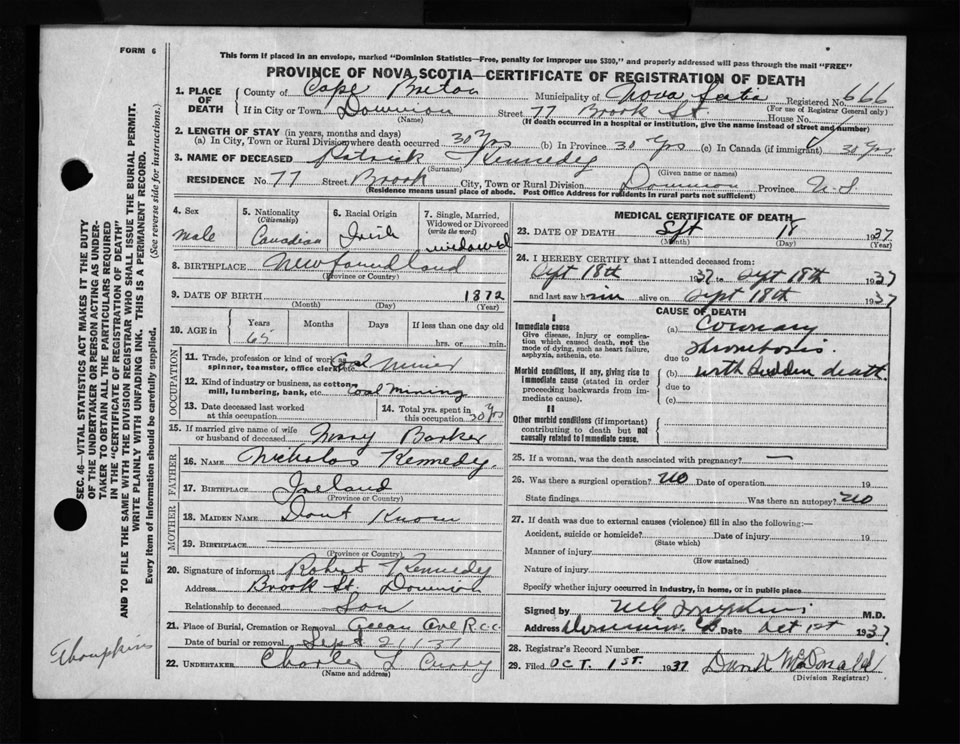 FORM 6
This form if placed in an envelope, marked "Dominion Statistics—Free, penalty for improper use $300," and properly addressed will pass through the mail "FREE"
PROVINCE OF NOVA SCOTIA—CERTIFICATE OF REGISTRATION OF DEATH
1. PLACE OF DEATH County of Cape Breton Municipality of Nova Scotia Registered No. 666
(For use of Registrar General only)
If in City or Town Dominion Street 77 Brook St. House No.
(Name) (If death occurred in a hospital or institution, give the name instead of street and number)
2. LENGTH OF STAY (in years, months and days)
(a) In City, Town or Rural Division where death occurred 30 Yrs (b) In Province 30 Yrs (c) In Canada (if immigrant) 30 Yrs
3. NAME OF DECEASED Patrick Kennedy
(Surname) (Given name or names)
RESIDENCE No. 77 Street Brook City, Town or Rural Division Dominion Province N.S.
(Residence means usual place of abode. Post Office Address for residents in rural parts not sufficient)
4. Sex
male
5. Nationality
(Citizenship)
Canadian
6. Racial Origin
Irish
7. Single, Married, Widowed or Divorced
(write the word)
widowed
8. BIRTHPLACE Newfoundland
(Province or Country)
9. DATE OF BIRTH 1872
(Month) (Day) (Year)
10. AGE in Years Months Days If less than one day old
65 hrs. or min.
OCCUPATION
11. Trade, profession or kind of work as spinner, teamster, office clerk, etc. Coal Miner
12. Kind of industry or business, as cotton mill, lumbering, bank, etc. Coal Mining
13. Date deceased last worked at this occupation
14. Total yrs. spent in this occupation 30 Yrs
15. If married give name of wife or husband of deceased Mary Barker
FATHER
16. NAME Nicholas Kennedy.
17. BIRTHPLACE Ireland
(Province or Country)
MOTHER
18. MAIDEN NAME Dont Know
19. BIRTHPLACE
(Province or Country)
20. Signature of informant Robert Kennedy
Address Brook St. Dominion
Relationship to deceased Son
21. Place of Burial, Cremation or Removal
Date of burial or removal Sept 21-37
22. UNDERTAKER Charles L Curry
(Name and address)
MEDICAL CERTIFICATE OF DEATH
23. DATE OF DEATH Sept 18 1937
(Month) (Day) (Year)
24. I HEREBY CERTIFY that I attended deceased from:
Sept 18th 1937 to Sept 18th 1937
and last saw him alive on Sept 18th 1937
CAUSE OF DEATH
I
Immediate cause
Give disease, injury or complication which caused death, not the mode of dying, such as heart failure, asphyxia, asthenia, etc.
(a) Coronary
thrombosis.
due to
Morbid conditions, if any, giving rise to immediate cause (stated in order proceeding backwards from immediate cause).
(b) with sudden death.
due to
(c)
II
Other morbid conditions (if important) contributing to death but not causally related to immediate cause.
25. If a woman, was the death associated with pregnancy? —
26. Was there a surgical operation? No Date of operation 19
State findings Was there an autopsy? No
27. If death was due to external causes (violence) fill in also the following:—
Accident, suicide or homicide? Date of injury 19
(State which)
Manner of injury
(How sustained)
Nature of injury
Specify whether injury occurred in Industry, in home, or in public place
Signed by M.D.
Address Dominion Date Oct 1st 1937
28. Registrar's Record Number
29. Filed OCT. 1ST. 1937 McDonald
(Division Registrar)
SEC. 46—VITAL STATISTICS ACT MAKES IT THE DUTY
OF THE UNDERTAKER OR PERSON ACTING AS UNDERTAKER TO OBTAIN ALL THE PARTICULARS REQUIRED
IN THE "CERTIFICATE OF REGISTRATION OF DEATH"
AND TO FILE THE SAME WITH THE DIVISION REGISTRAR WHO SHALL ISSUE THE BURIAL PERMIT.
WRITE PLAINLY WITH UNFADING INK. THIS IS A PERMANENT RECORD.
Every item of information should be carefully supplied. (See reverse side for instructions.)